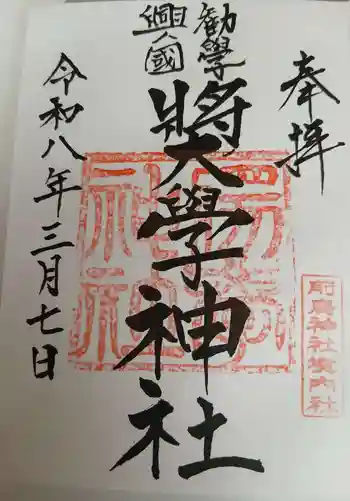 奉拝
勸學
興國
奬學神社
令和八年三月七日
前鳥神社境内社